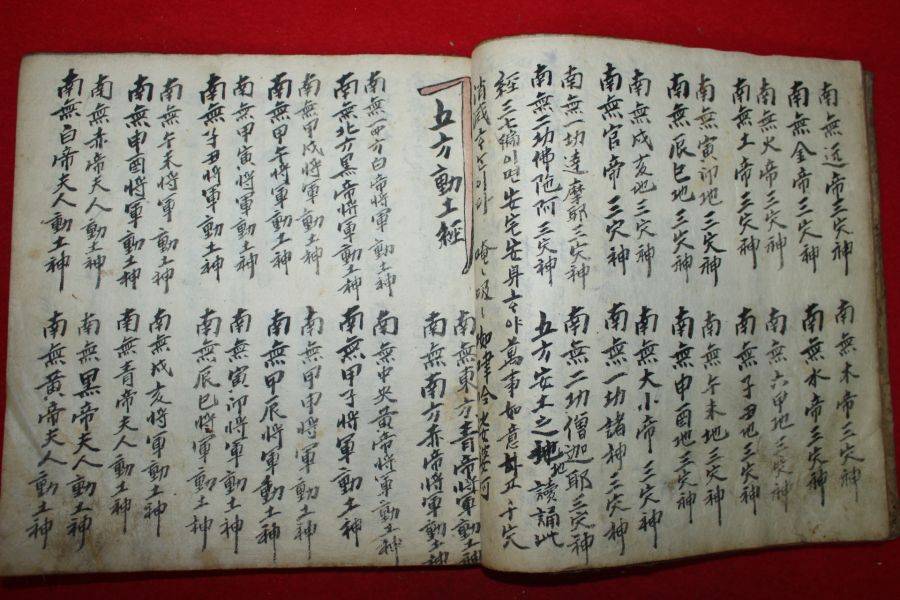 南無帝三穴神 南無木帝三穴神
南無金帝三穴神 南無水帝三穴神
南無火帝三穴神 南無六甲地三穴神
南無土帝三穴神 南無子丑地三穴神
南無寅卯地三穴神 南無午未地三穴神
南無辰巳地三穴神 南無申酉地三穴神
南無戌亥地三穴神 南無大小帝三穴神
南無官帝三穴神 南無一功諸神三穴神
南無一功達摩耶三穴神 南無二功僧迦耶三穴神
南無二功佛陁阿三穴神 五方安土之地地讀誦此
經三七編이면 安宅安身하야 萬事如意하고 千穴
消滅
五方動土經
南無東方青帝將軍動土神
南無南方赤帝將軍動土神
南無西方白帝將軍動土神 南無中央黃帝將軍動土神
南無北方黑帝將軍動土神 南無甲子將軍動土神
南無甲戌將軍動土神 南無甲申將軍動土神
南無甲午將軍動土神 南無甲辰將軍動土神
南無甲寅將軍動土神 南無寅卯將軍動土神
南無子丑將軍動土神 南無辰巳將軍動土神
南無午未將軍動土神 南無戌亥將軍動土神
南無申酉將軍動土神 南無青帝夫人動土神
南無赤帝夫人動土神 南無黑帝夫人動土神
南無白帝夫人動土神 南無黃帝夫人動土神